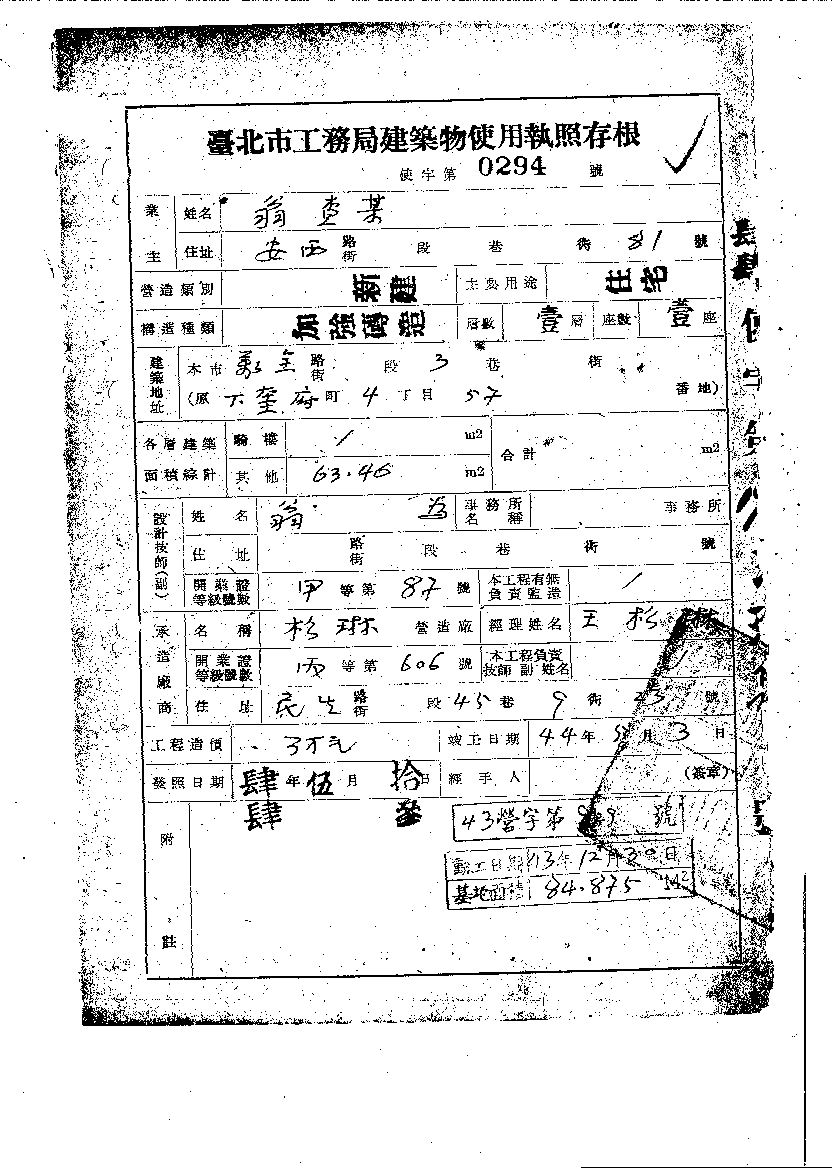 臺北市工務局建築物使用執照存根
使字第 0294 號
業主 姓名 翁查某
住址 安西 路街 段 巷 衖 81 號
營造類別 新建 主要用途 住宅
構造種類 加強磚造 層數 壹層 座數 壹座
建築地址 本市 萬全 路街 段 3 巷 衖
(原 下奎府町 4 丁目 57 番地)
各層建築面積綜計 騎樓 / m2 合計 m2
其他 63.46 m2
設計技師(副) 姓名 翁 為 事務所名稱 事務所
住址 路街 段 巷 衖 號
開業證等級號數 甲等第 87 號 本工程有無負責監造 /
承造廠商 名稱 杉琳 營造廠 經理姓名 王杉琳
開業證等級號數 丙等第 606 號 本工程負責技師副姓名 /
住址 民生 路街 段 45 巷 9 衖 23 號
工程造價 3万元 竣工日期 44年 月 3日
發照日期 肆肆年伍月拾 日 經手人 (簽章)
附註
43營字第 號
動工日期 43年12月30日
基地面積 84.875 M2